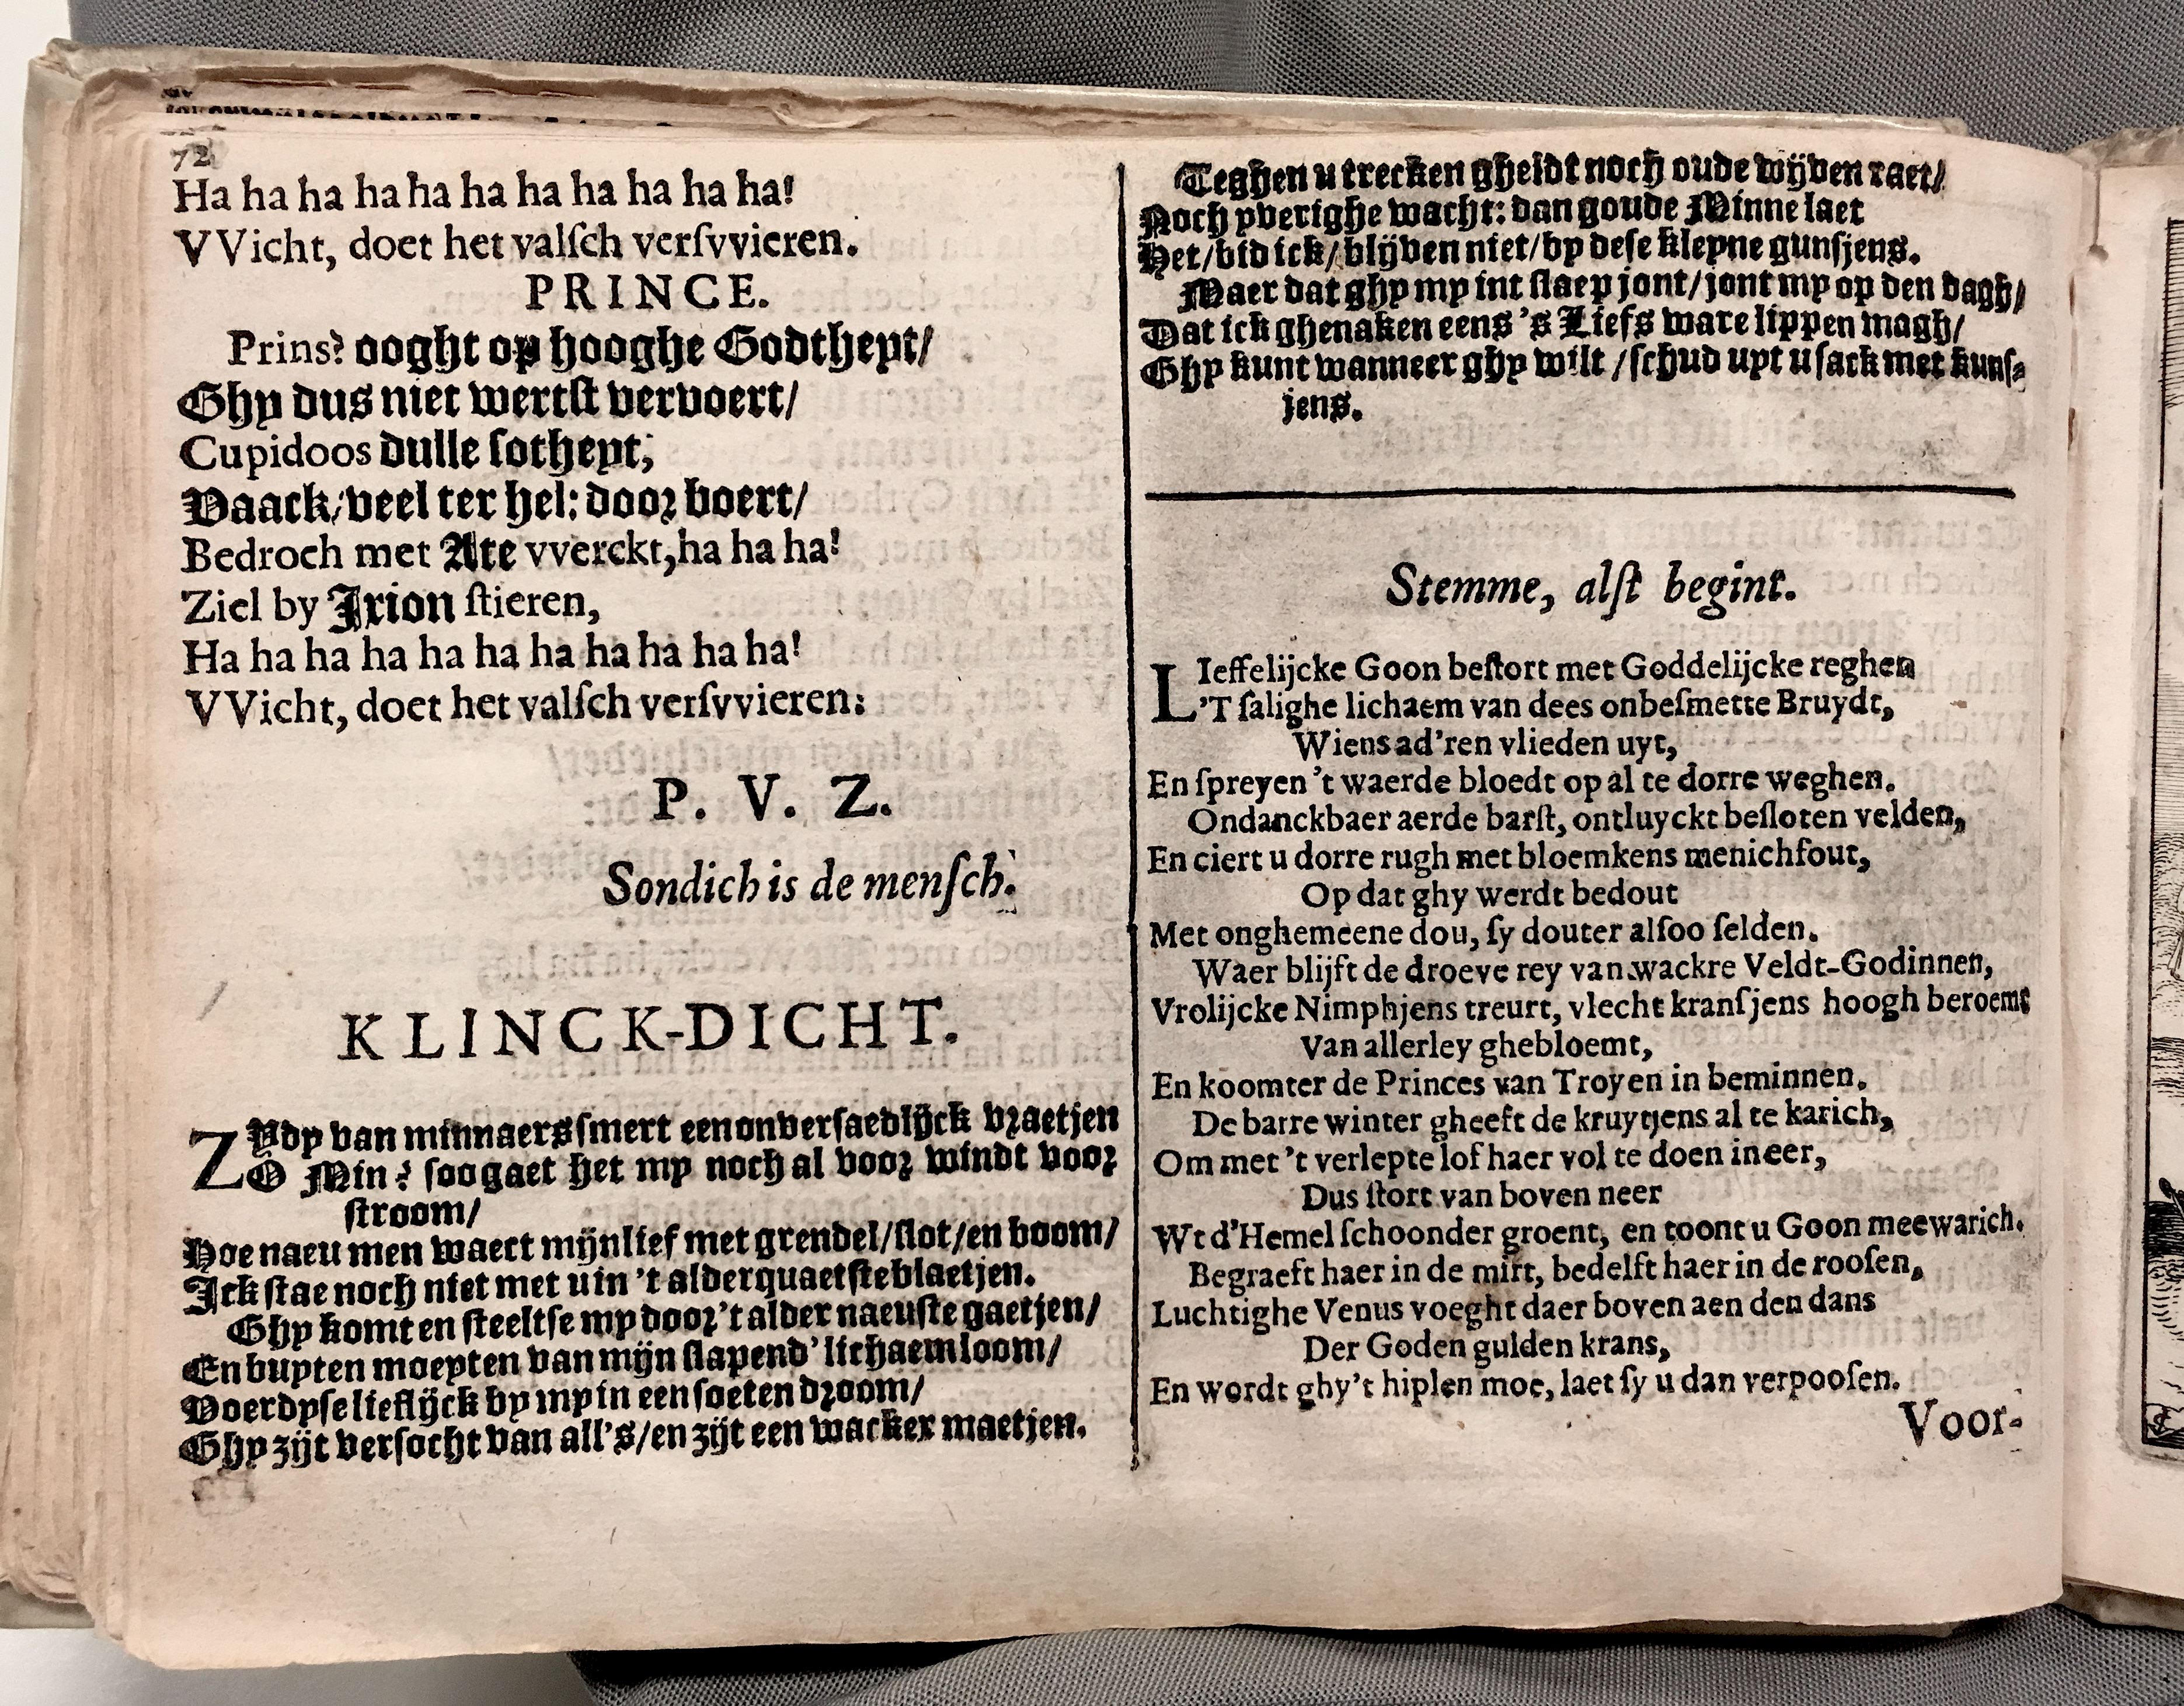 72
Ha ha ha ha ha ha ha ha ha ha ha!
VVicht, doet het valſch verſvvieren.
PRINCE.
Prins? ooght op hooghe Godtheyt/
Ghy dus niet wertſt vervoert/
Cupidoos dulle ſotheyt;
Vaack/veel ter hel: door boert/
Bedroch met Ate vverckt, ha ha ha!
Ziel by Ixion ſtieren,
Ha ha ha ha ha ha ha ha ha ha ha!
VVicht, doet het valſch verſvvieren:
P. V. Z.
Sondich is de menſch.
KLINCK-DICHT.
ZYdy van minnaers ſmert een onverſaedlijck vraetjen
O Min? ſoo gaet het my noch al voor windt voor
ſtroom/
Hoe naeu men waert mijn lief met grendel/ſlot/en boom/
Ick ſtae noch niet met u in 't alderquaetſte blaetjen.
Ghy komt en ſteeltſe my door 't alder naeuſte gaetjen/
En buyten moeyten van mijn ſlapend' lichaem loom/
Voerdyſe lieflijck by my in een ſoeten droom/
Ghy zijt verſocht van all's/en zijt een wacker maetjen.
Teghen u trecken gheldt noch oude wijven raet/
Noch yverighe wacht: dan goude Minne laet
Het/bid ick/blijven niet/by deſe kleyne gunſjens.
Maer dat ghy my int ſlaep jont/jont my op den dagh/
Dat ick ghenaken eens 's Liefs ware lippen magh/
Ghy kunt wanneer ghy wilt/ſchud uyt u ſack met kunſ-
jens.
Stemme, alſt begint.
LIeffelijcke Goon beſtort met Goddelijcke reghen
'T ſalighe lichaem van dees onbeſmette Bruydt,
Wiens ad'ren vlieden uyt,
En ſpreyen 't waerde bloedt op al te dorre weghen.
Ondanckbaer aerde barſt, ontluyckt beſloten velden,
En ciert u dorre rugh met bloemkens menichfout,
Op dat ghy werdt bedout
Met onghemeene dou, ſy douter alſoo ſelden.
Waer blijft de droeve rey van wackre Veldt-Godinnen,
Vrolijcke Nimphjens treurt, vlecht kranſjens hoogh beroemt
Van allerley ghebloemt,
En koomter de Princes van Troyen in beminnen.
De barre winter gheeft de kruytjens al te karich,
Om met 't verlepte lof haer vol te doen in eer,
Dus ſtort van boven neer
Wt d'Hemel ſchoonder groent, en toont u Goon meewarich.
Begraeft haer in de mirt, bedelft haer in de rooſen,
Luchtighe Venus voeght daer boven aen den dans
Der Goden gulden krans,
En wordt ghy't hiplen moe, laet ſy u dan verpooſen.
Voor-